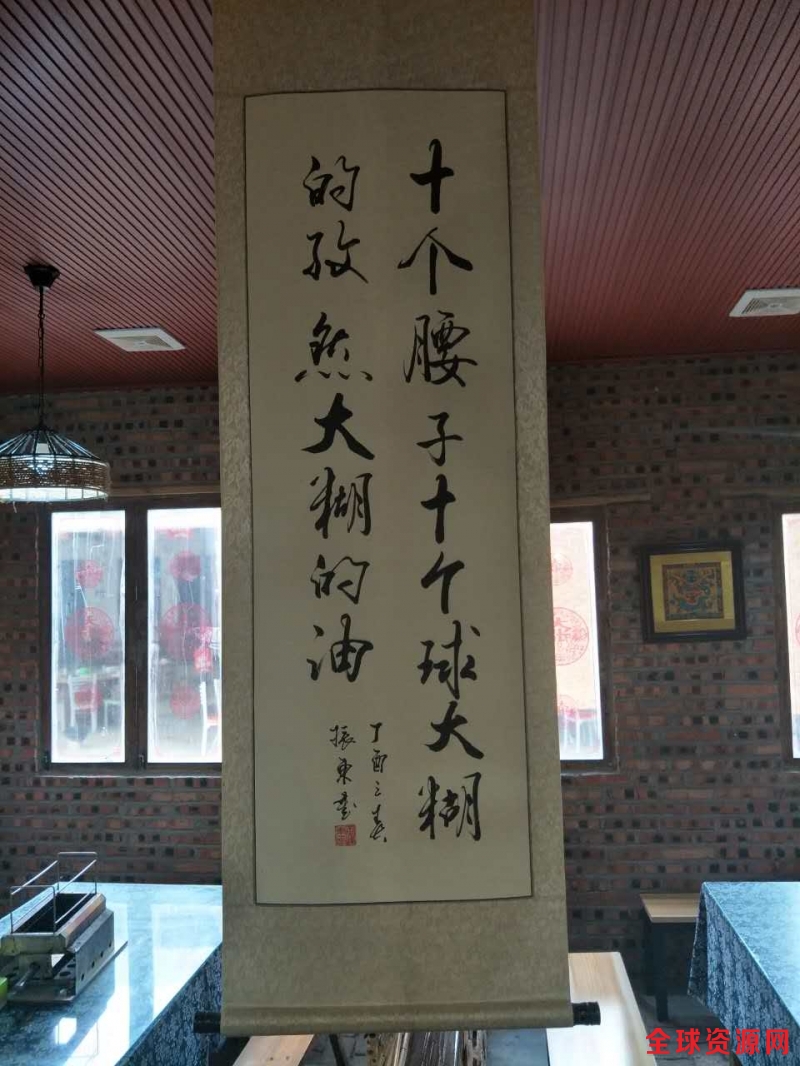 十个腰子十个球大糊
的孜然大糊的油
丁酉之春
振东书
全球资源网